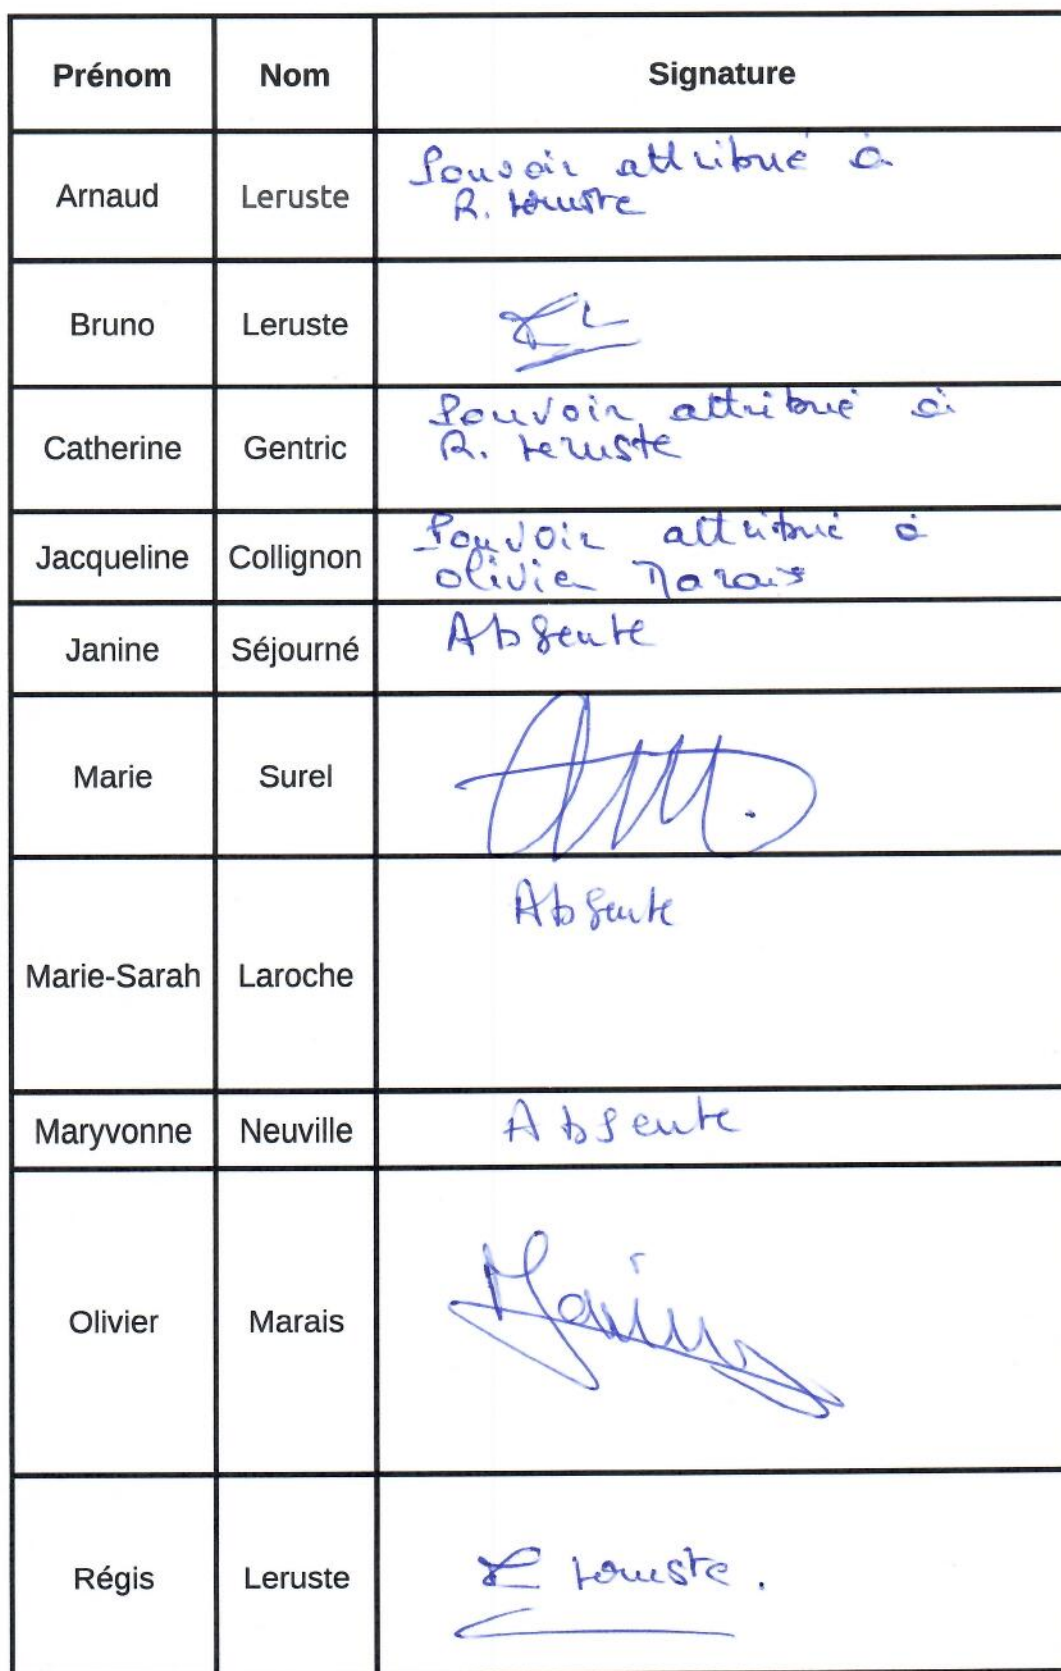 Prénom Nom Signature
Arnaud Leruste Pouvoir attribué à
R. Leruste
Bruno Leruste
Catherine Gentric Pouvoir attribué à
R. Leruste
Jacqueline Collignon Pouvoir attribué à
Olivier Marais
Janine Séjourné Absente
Marie Surel
Marie-Sarah Laroche Absente
Maryvonne Neuville Absente
Olivier Marais
Régis Leruste Leruste.